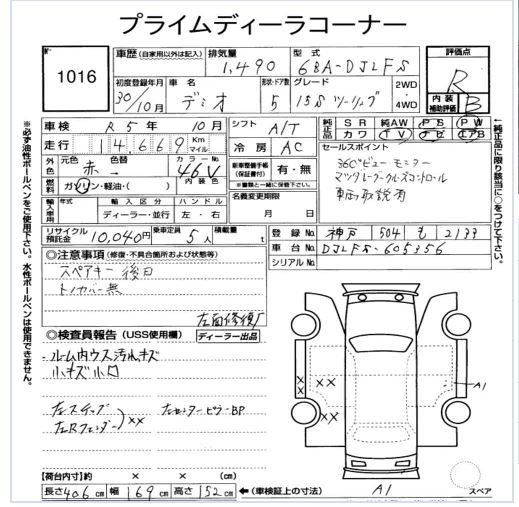 プライムディーラコーナー
1016
車歴 (自家用以外は記入) 排気量 型式 評価点
1,490 6BA-DJLFS R
初度登録年月 車名 形状・ドア数 グレード 2WD
30/10月 デミオ 5 15S ツーリング 4WD
内装補助評価 B
車検 R5年 10月 シフト A/T 純正品 SR 純AW PS PW
カワ TV ナビ エアB
走行 14669 Km マイル 冷房 AC
セールスポイント
外色 元色 色替 カラーNo.
赤 46V
360°ビューモニター
マツダレーダークルーズコントロール
車両取説有
燃料 ガソリン・軽油・( ) 内装色
新車整備手帳(保証書付) 有・無
※書類と一緒に保管下さい。
名義変更期限
月 日
輸入車用 年式 輸入区分 ハンドル
ディーラー・並行 左・右
リサイクル預託金 10,040円 乗車定員 5人 積載量 t
登録No. 神戸 504 も 2133
車台No. DJLFS-605356
シリアルNo.
◎注意事項 (修復・不具合箇所および状態等)
スペアキー後日
トノカバー無
左面修復有
ディーラー出品
◎検査員報告 (USS使用欄)
ルーム内ウス汚れキズ
小キズ小凹
左ステップ
左Rフェンダー ××
左センターピラーBP
××
××
××
A1
【荷台内寸】約 × × (cm)
長さ406cm 幅169cm 高さ152cm ←(車検証上の寸法)
A1
スペア
※必ず油性ボールペンをご使用下さい。水性ボールペンは使用できません。
←純正品に限り該当に○をつけて下さい。